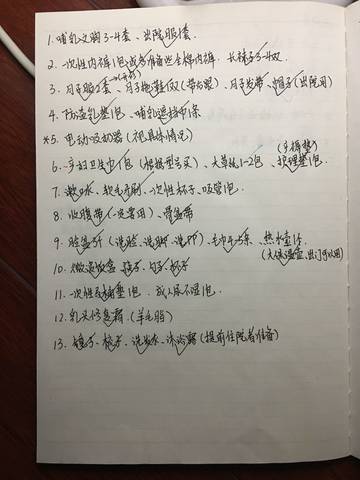 1. 哺乳文胸3-4套、出院服1套.
2. 一次性内裤1包或多准备些全棉内裤、长袜子3-4双
3. 月子服2套、月子拖鞋1双(带后跟)、月子发带、帽子(出院用)
4. 防溢乳垫1包、哺乳遮挡巾1条
*5. 电动吸奶器(视具体情况)
6. 产妇卫生巾1包(根据型号买)、大草纸1-2包、护理垫1包.
7. 漱口水、软毛牙刷、一次性杯子、吸管1包
8. 收腹带(一定要用)、骨盆带
9. 脸盆3个(洗脸、洗脚、洗PP)、毛巾4-5条、热水壶1个
(大保温壶,出门可以用)
10. 微波饭盒 筷子、勺子、杯子
11. 一次性马桶垫1包、成人尿不湿1包
12. 乳头修复霜(羊毛脂)
13. 镜子、梳子、洗发水、沐浴露(提前住院者准备)